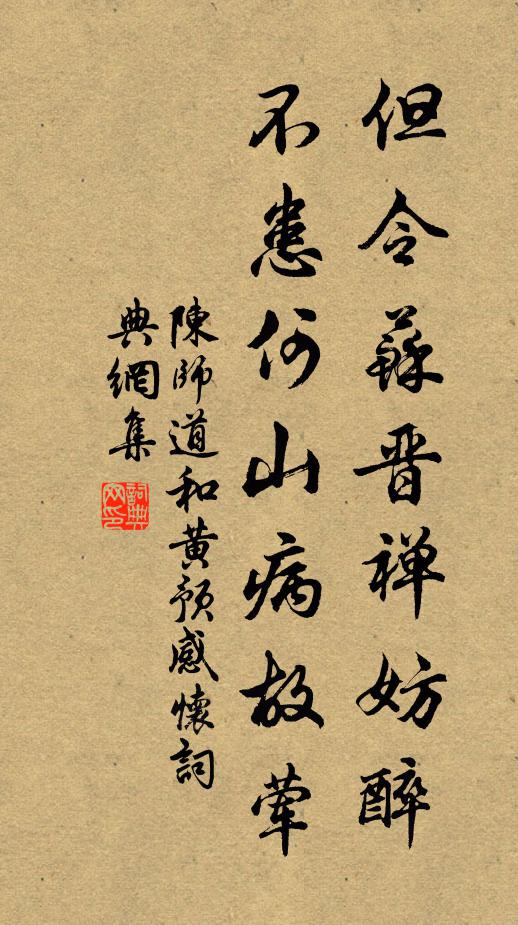 但令蘇晋禅妨醉
不患何山病故荤
陳師道和黄預感懷詞
典網集
詞典
网印